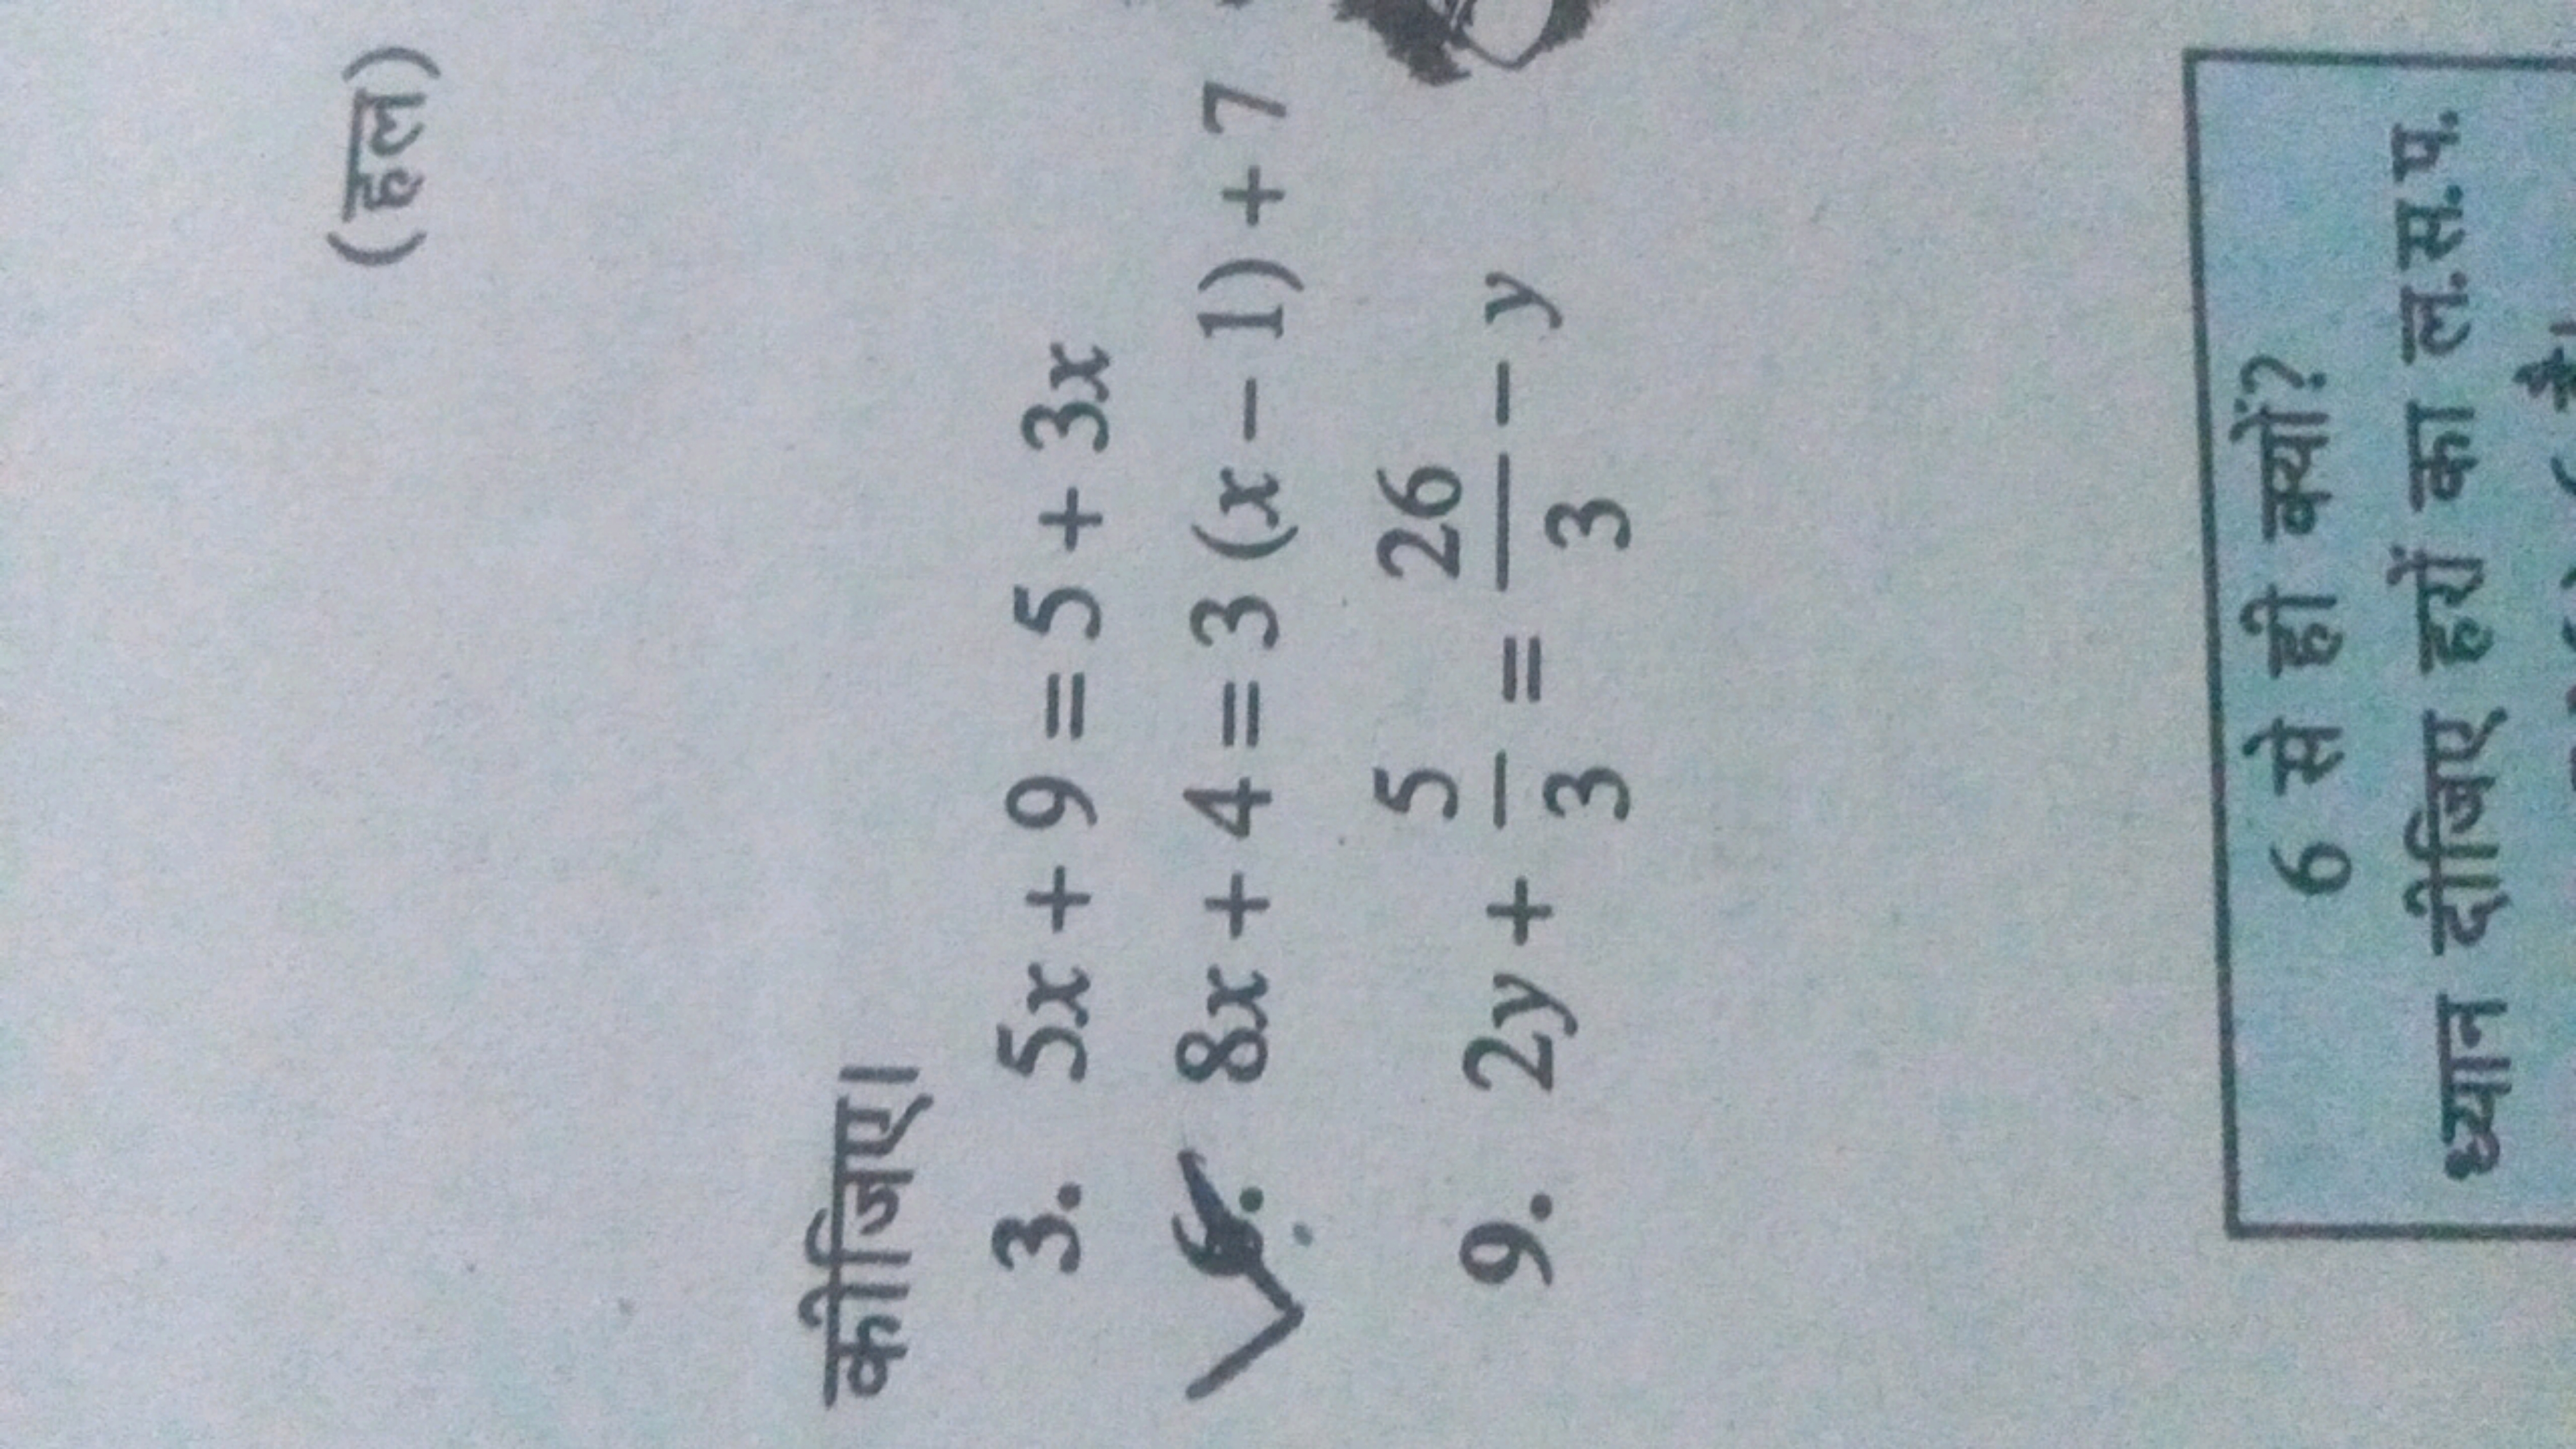 (हल)
कीजिए।
3. 5x + 9 = 5 + 3x
6. 8x + 4 = 3 (x – 1) + 7
9. 2y + 5/3 = 26/3 – y
6 से ही क्यों?
ध्यान दीजिए हरों का ल.स.प.